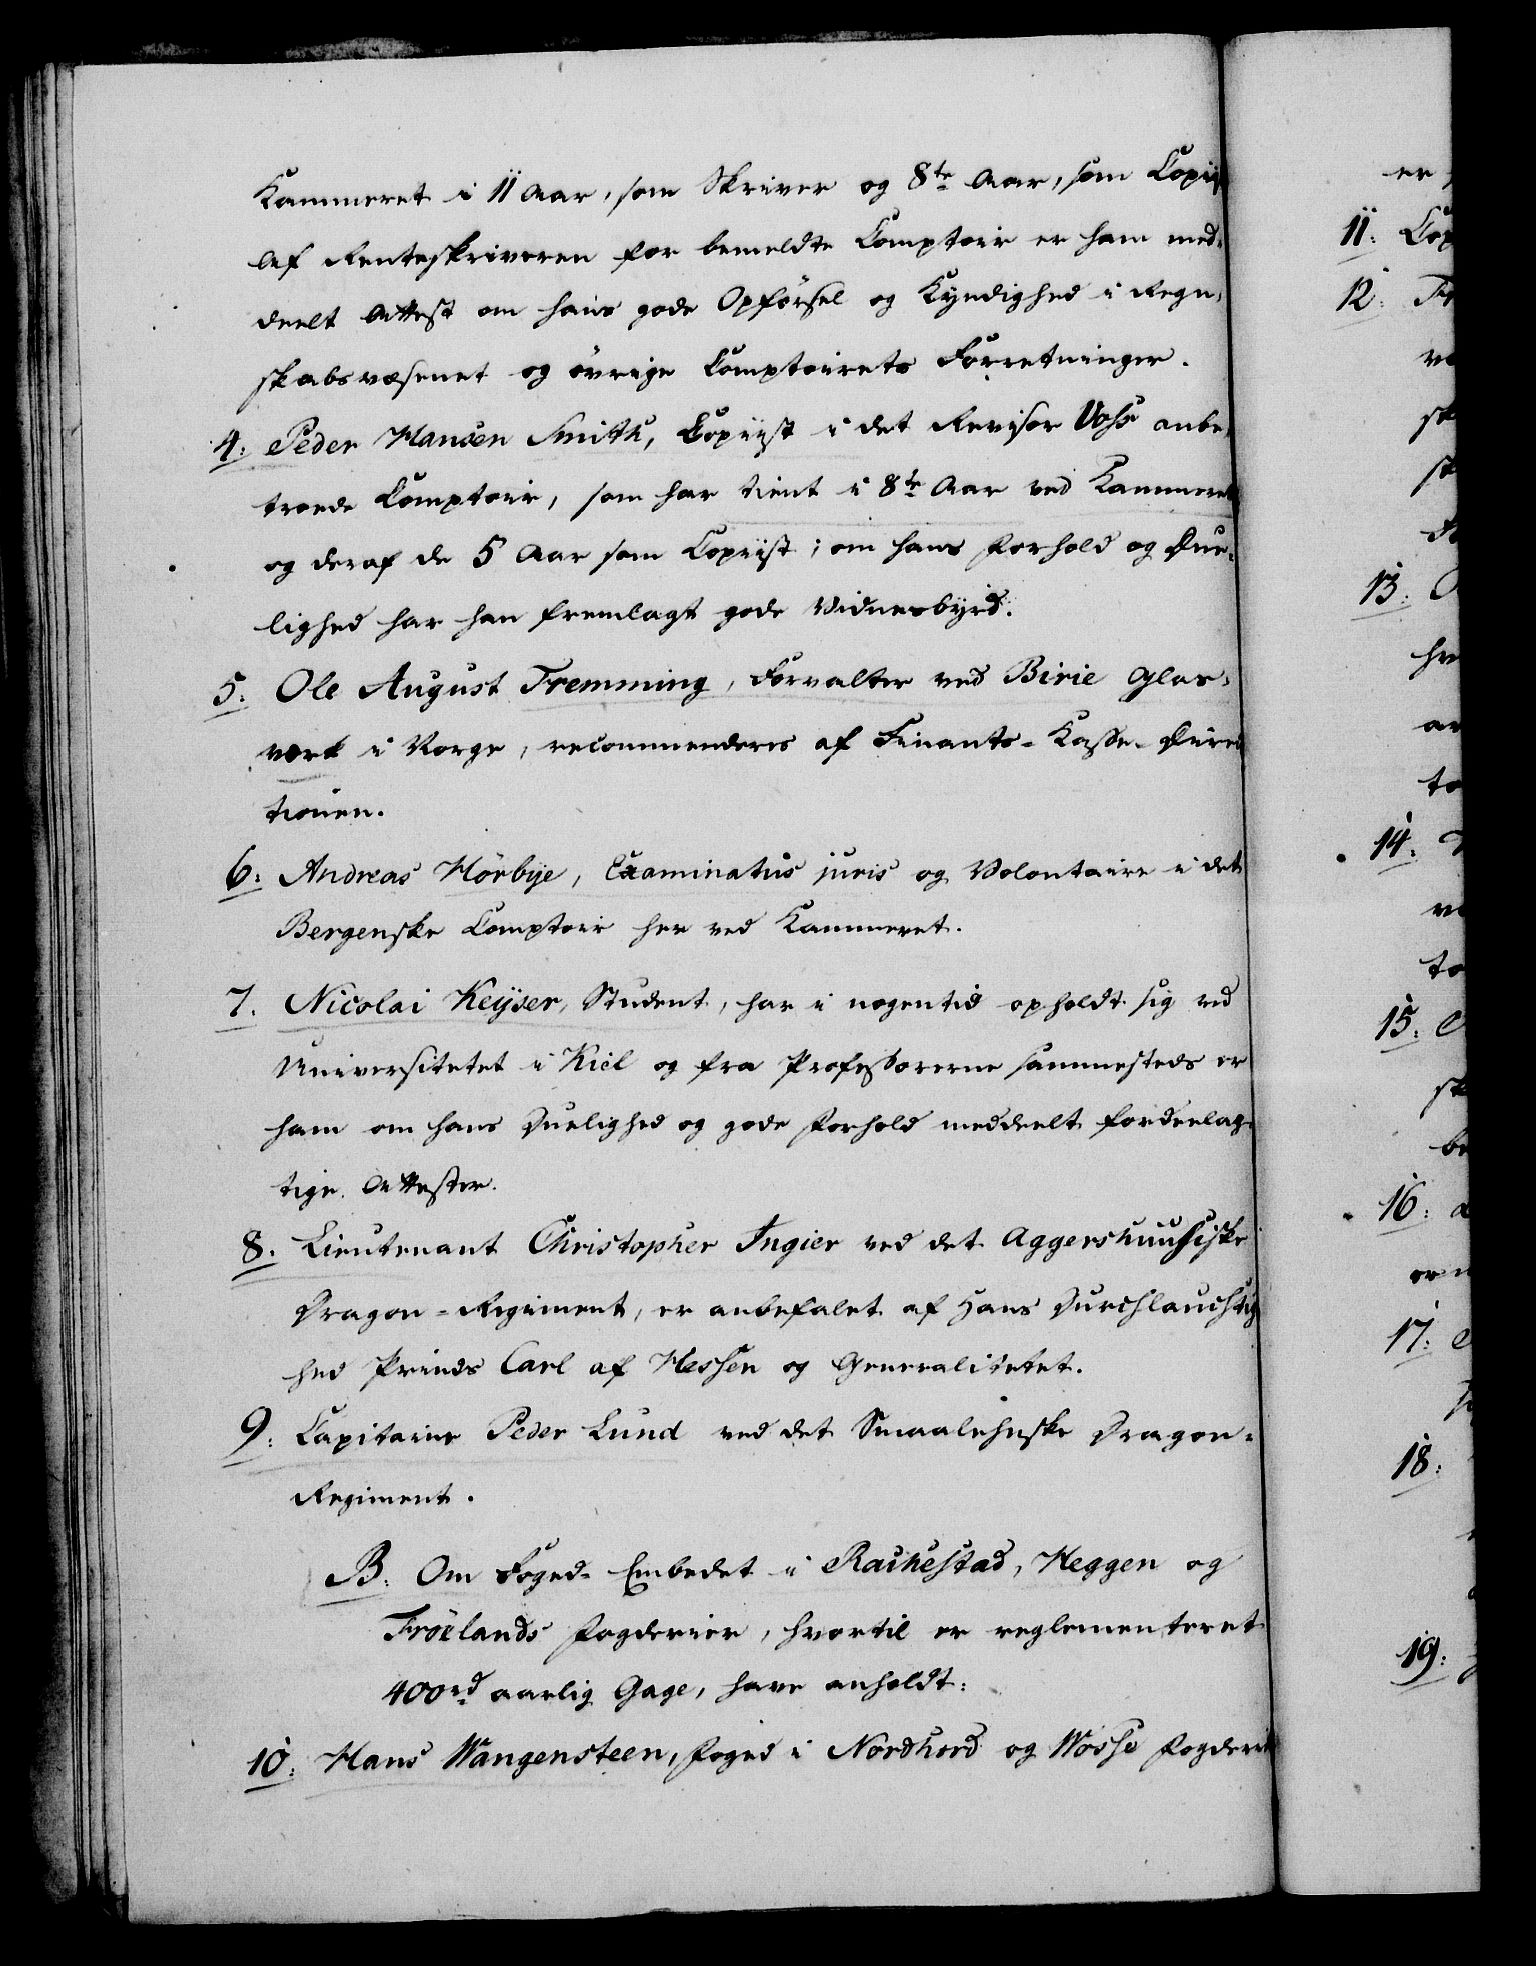 Kammeret i 11 Aar, som Skriver og 8te Aar, som Copiist
Af Renteskriveren for bemeldte Comptoir er ham med-
deelt Attest om hans gode Opførsel og Kyndighed i Regn-
skabsvæsenet og övrige Comptoirets Forretninger.
4. Peder Hansen Smith, Copiist i det Revisor Voss anbe-
troede Comptoir, som har tient i 8te Aar ved Kammeret
og deraf de 5 Aar som Copiist; om hans Forhold og Due-
lighed har han fremlagt gode Vidnesbyrd.
5. Ole August Tremming, Forvalter ved Birie Glas-
værk i Norge, recommenderes af Finants-Kasse-Direc
tionen.
6. Andreas Hörbye, Examinatus juris og Volontaire i det
Bergenske Comptoir her ved Kammeret.
7. Nicolai Keyser, Student, har i nogentid opholdt sig ved
Universitetet i Kiel og fra Professorerne sammesteds er
ham om hans Duelighed og gode Forhold meddeelt fordeelag-
tige Attester.
8. Lieutenant Christopher Ingier ved det Aggershuusiske
Dragon-Regiment, er anbefalet af Hans Durchlauchtig
hed Prinds Carl af Hessen og Generalitetet.
9. Capitaine Peder Lund ved det Smaalehnske Dragon-
Regiment.
B. Om Foged-Embedet i Rachestad, Heggen og
Frölands Fogderier, hvortil er reglementeret
400rd aarlig Gage, have anholdt:
10. Hans Wangensteen, Foged i Nordhord og Wosse Fogderie
er
11:
12:
13:
14:
15:
16:
17:
18:
19: